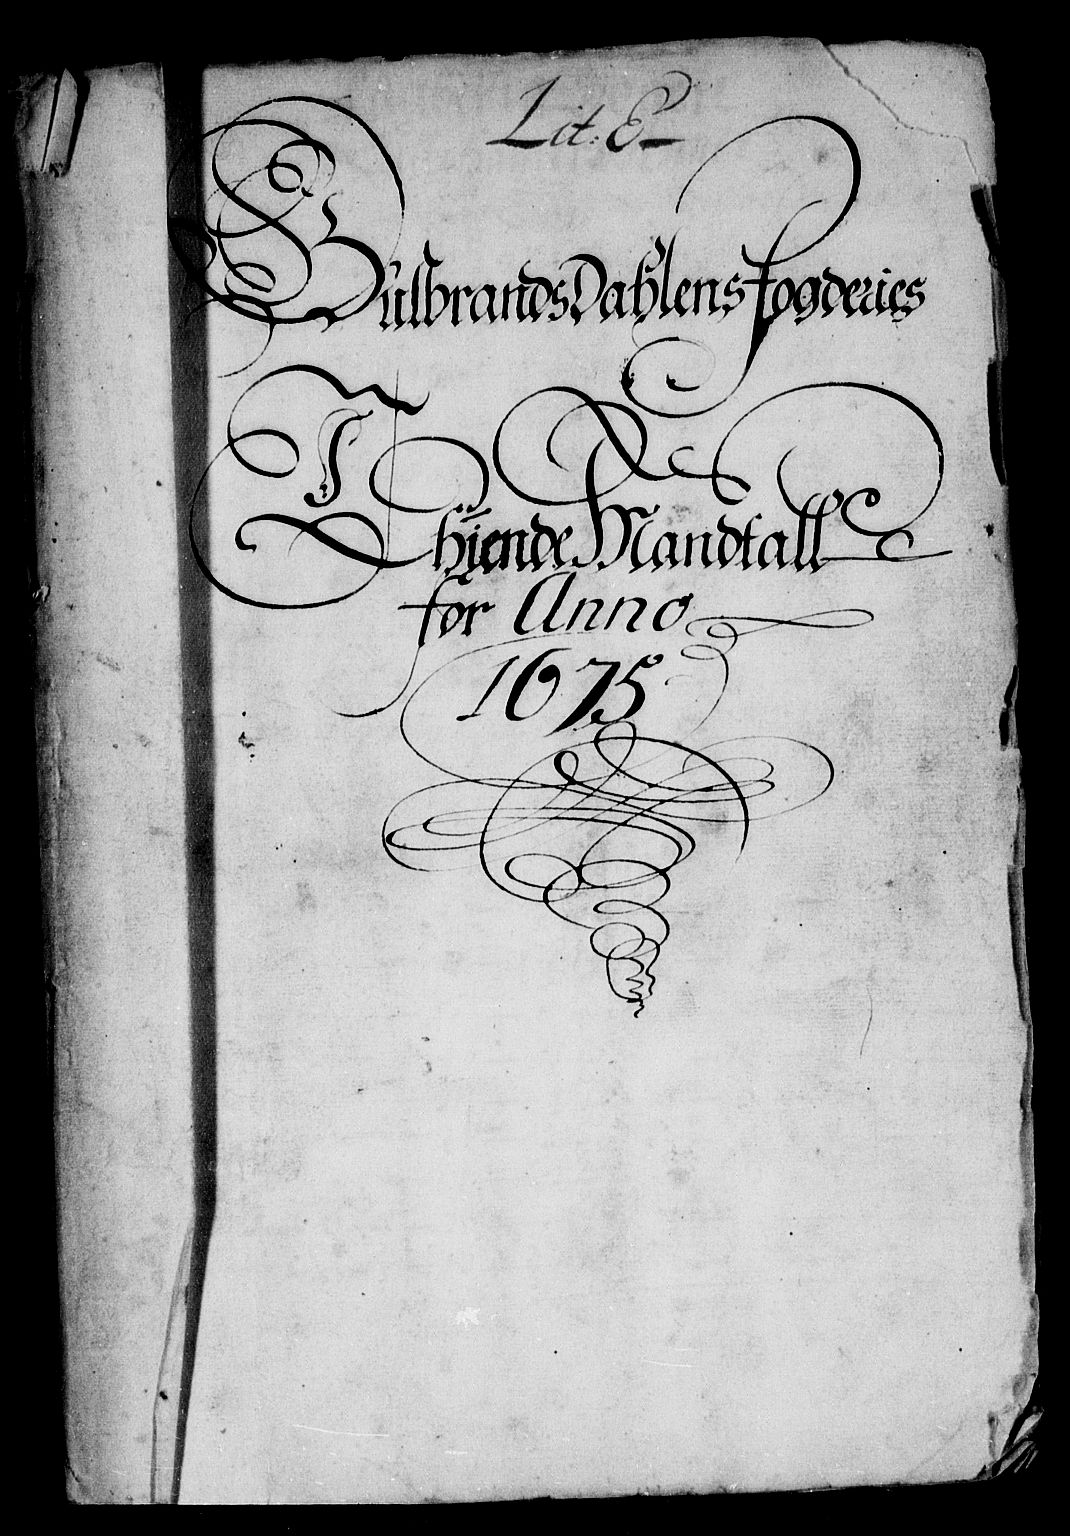 Lit: E
GulbrandsDahlens fogderies
Thiende Mandtall
for Anno
1675